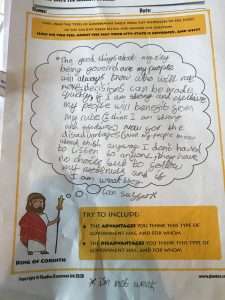 Name: Date:
FIRST, MARK THE TYPE OF GOVERNMENT THEN PUT YOURSELVES IN THE SHOES
OF THE ANCIENT GREEK PEOPLE AND ANSWER THE QUESTION:
HOW DO YOU FEEL ABOUT THE WAY YOUR CITY-STATE IS GOVERNED, AND WHY?
The good things about my city
being governed are my people
will always know who will
make decisions can be made
quickly if I am strong and effective
my people will benefit from
my rule (I think I am strong
and effective). Now for the
disadvantages
about I don't have
to listen to anyone they have
no choice but to follow
my methods and if
I am weak they
can suffer*
KING OF CORINTH
TRY TO INCLUDE:
THE ADVANTAGES YOU THINK THIS TYPE OF
GOVERNMENT HAS, AND FOR WHOM
THE DISADVANTAGES YOU THINK THIS TYPE OF
GOVERNMENT HAS, AND FOR WHOM
Copyright of PlanBee Resources Ltd
www.planbee
*I'm not weak